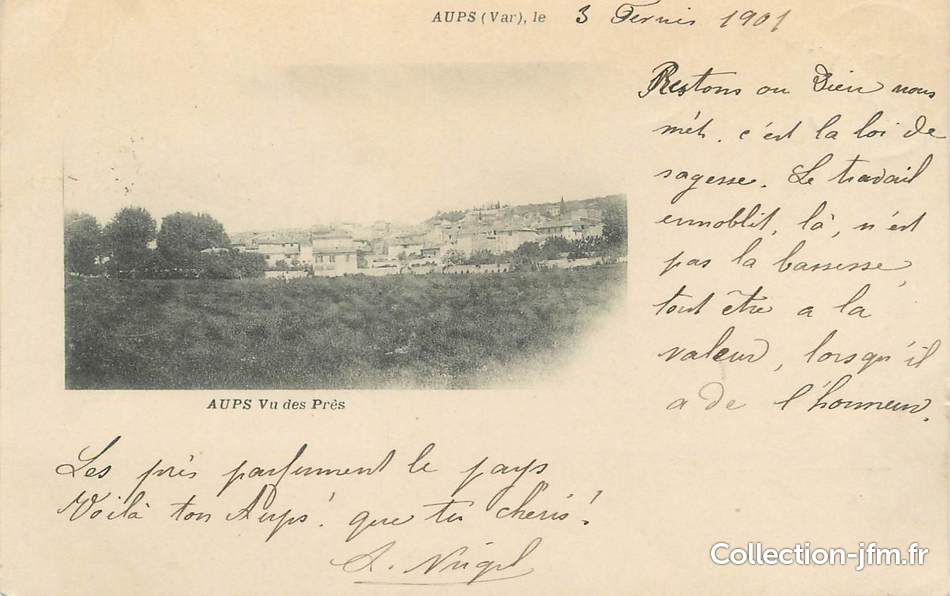 AUPS (Var), le 3 Fevrier 1901
Restons ou Dieu nous
mèt. c'est la loi de
sagesse. Le travail
ennoblit, là, n'est
pas la bassesse,
tout être a la
valeur, lorsqu'il
a de l'honneur.
AUPS Vu des Près
Les près parfument le pays
Voilà ton Aups! que tu chéris!
Collection-jfm.fr